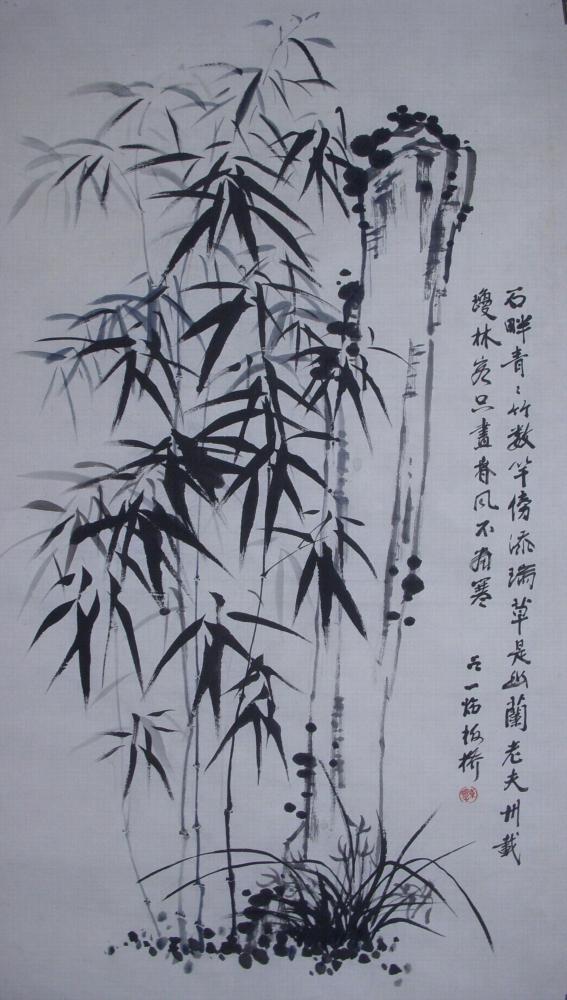 石畔青々竹数竿傍添瑞草是幽蘭老夫卅載
瓊林客只畫春风不畫寒
一 板桥